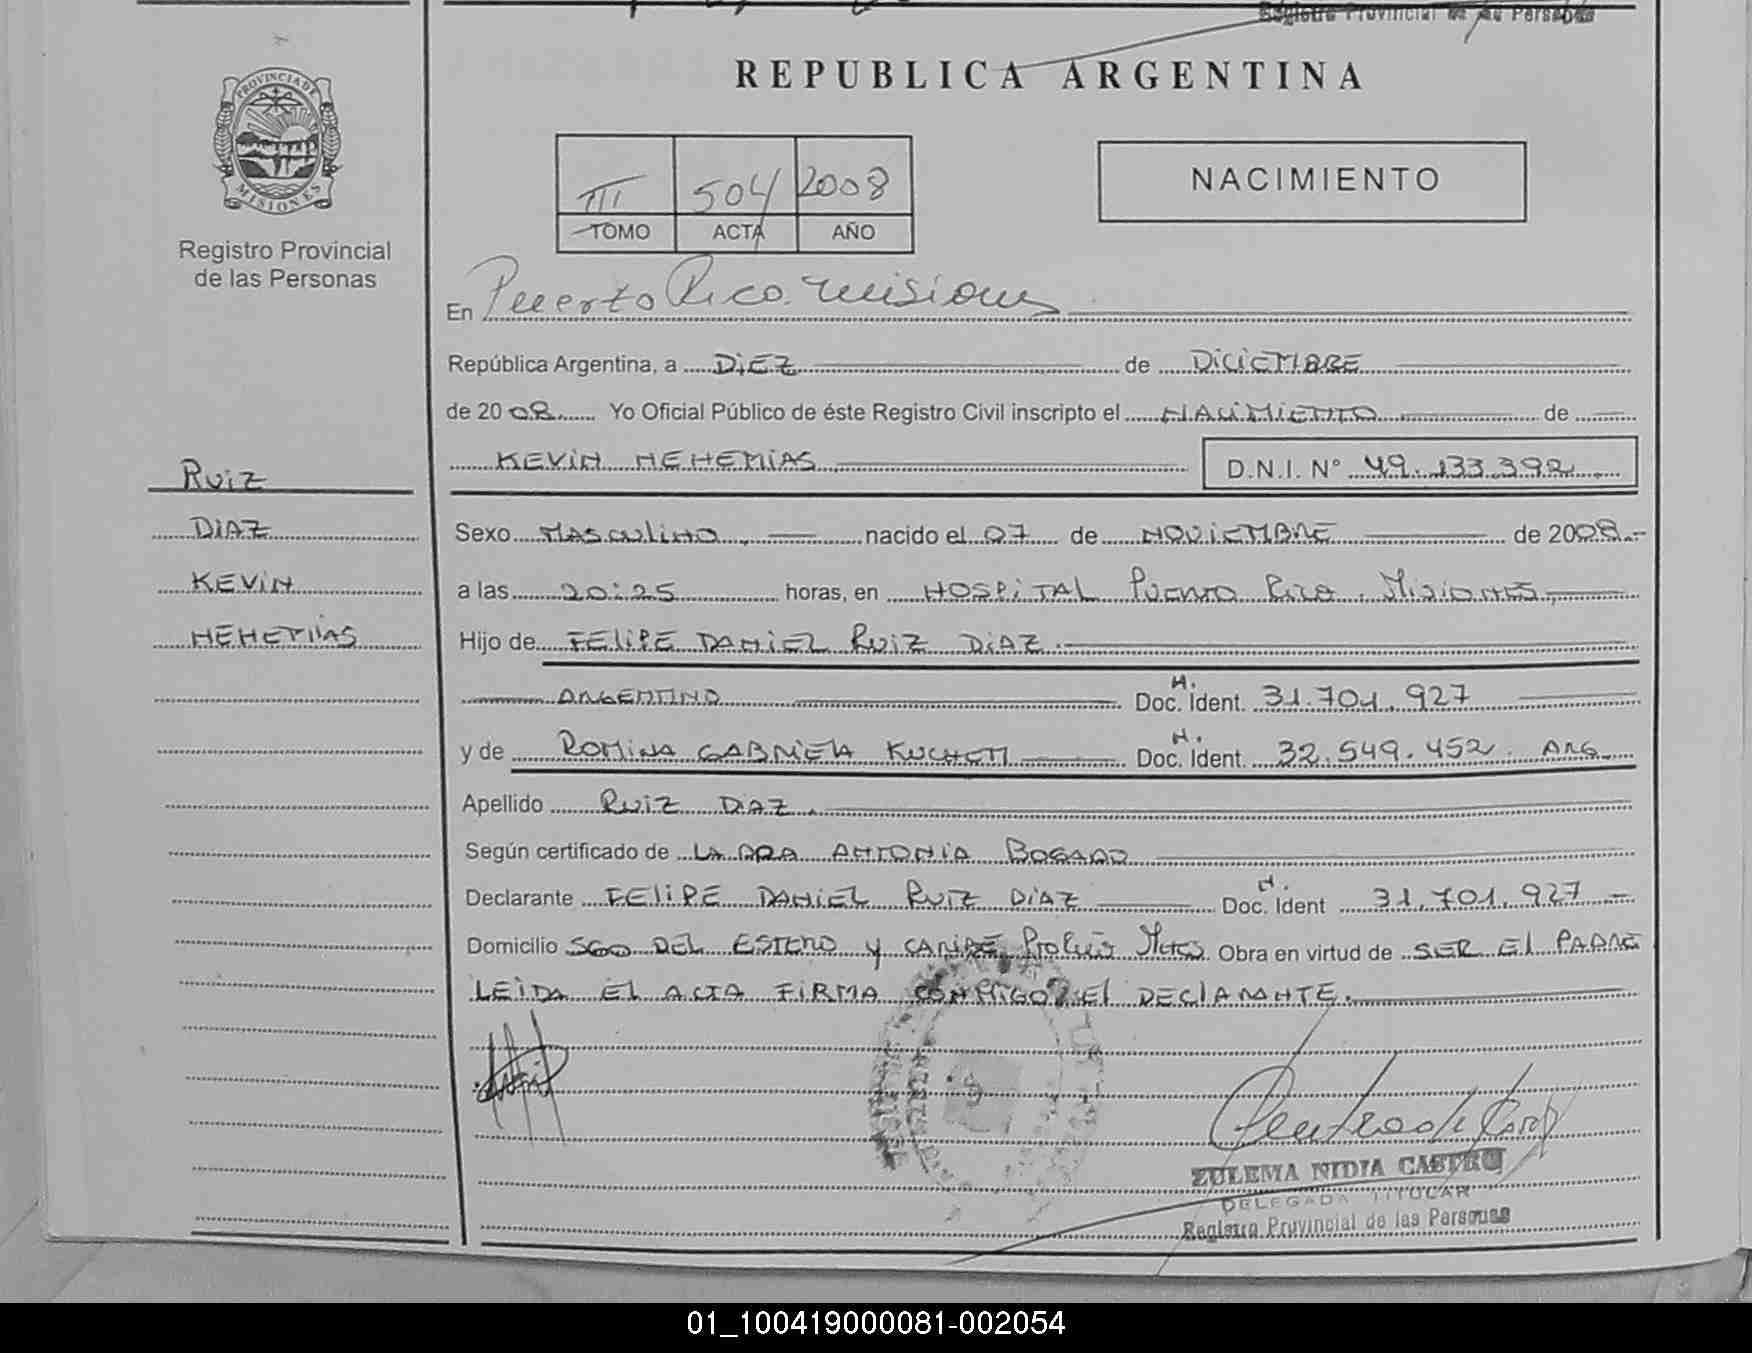 Registro Provincial de las Personas
REPUBLICA ARGENTINA
PROVINCIA DE
MISIONES
Registro Provincial
de las Personas
III 504 2008
TOMO ACTA AÑO
NACIMIENTO
En Puerto Rico. Misiones
República Argentina, a DIEZ de DICIEMBRE
de 2008 Yo Oficial Público de éste Registro Civil inscripto el NACIMIENTO de
KEVIN NEHEMIAS D.N.I. N° 49.133.392
RUIZ
DIAZ
KEVIN
NEHEMIAS
Sexo MASCULINO, nacido el 07 de NOVIEMBRE de 2008.-
a las 20:25 horas, en HOSPITAL PUERTO RICO, MISIONES,
Hijo de FELIPE DANIEL RUIZ DIAZ.
ARGENTINO Doc. N. Ident. 31.701.927
y de ROMINA GABRIELA Doc. N. Ident. 32.549.452. ARG.
Apellido RUIZ DIAZ.
Según certificado de LA DRA ANTONIA BOGADO
Declarante FELIPE DANIEL RUIZ DIAZ Doc. N. Ident 31.701.927.-
Domicilio SGO DEL ESTERO y CARIBE Pto Rico Mnes. Obra en virtud de SER El PADRE
LEIDA EL ACTA FIRMA CONMIGO El DECLARANTE.
ZULEMA NIDIA CASTRO
DELEGADA TITULAR
Registro Provincial de las Personas
01_100419000081-002054